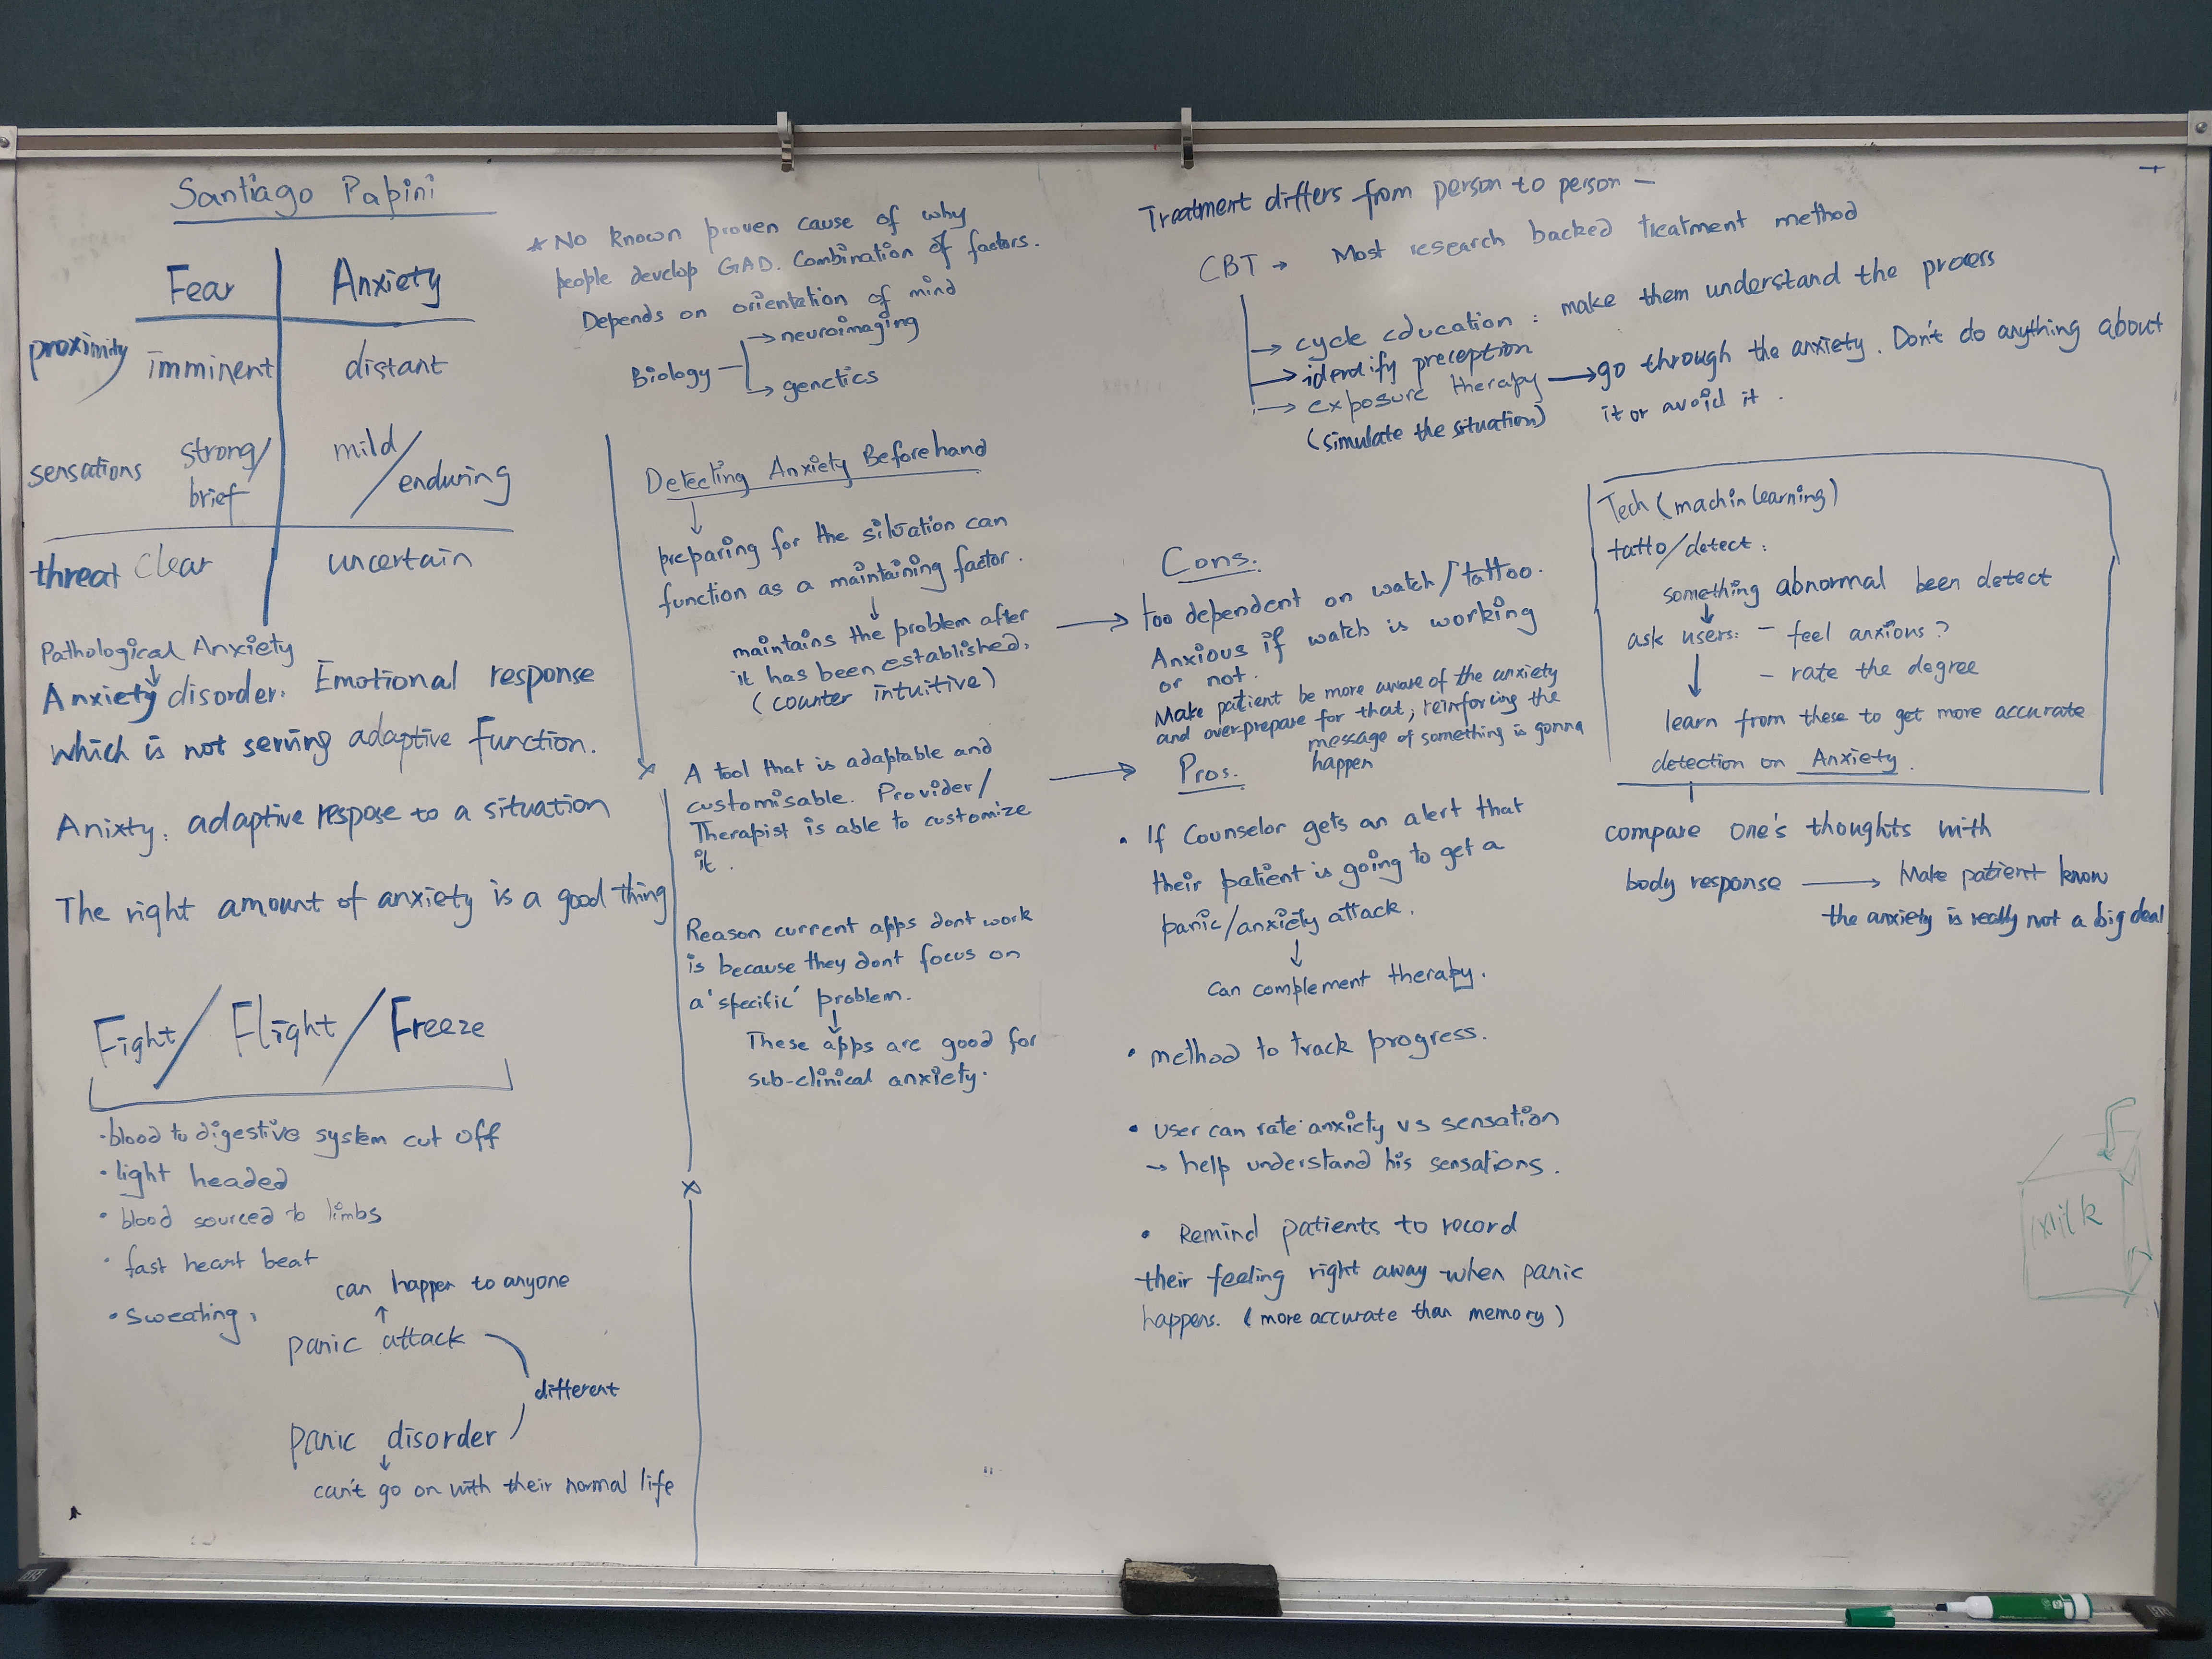 Santiago Papini
Fear Anxiety
proximity imminent distant
sensations strong/ mild/
brief enduring
threat clear uncertain
Pathological Anxiety
Anxiety disorder: Emotional response
which is not serving adaptive function.
Anixty: adaptive respose to a situation
The right amount of anxiety is a good thing
Fight/ Flight/ Freeze
·blood to digestive system cut off
·light headed
·blood sourced to limbs
·fast heart beat
·sweating,
can happen to anyone
panic attack
different
panic disorder
can't go on with their normal life
* No known proven cause of why
people develop GAD. Combination of factors.
Depends on orientation of mind
Biology → neuroimaging
→ genetics
Detecting Anxiety Beforehand
preparing for the situation can
function as a maintaining factor.
maintains the problem after
it has been established.
(counter intuitive)
A tool that is adaptable and
customisable. Provider/
Therapist is able to customize
it.
Reason current apps dont work
is because they dont focus on
a 'specific' problem.
These apps are good for
sub-clinical anxiety.
Treatment differs from person to person -
CBT → Most research backed treatment method
→ cycle education : make them understand the process
→ identify preception
→ exposure therapy → go through the anxiety. Don't do anything about
(simulate the situation) it or avoid it.
Cons.
too dependent on watch/tattoo.
Anxious if watch is working
or not.
Make patient be more aware of the anxiety
and over-prepare for that; reinforcing the
message of something is gonna
happen
Pros.
• If Counselor gets an alert that
their patient is going to get a
panic/anxiety attack.
can complement therapy.
• method to track progress.
• user can rate anxiety vs sensation
→ help understand his sensations.
• Remind patients to record
their feeling right away when panic
happens. (more accurate than memory)
Tech (machin learning)
tatto/detect:
something abnormal been detect
ask users: - feel anxions?
- rate the degree
learn from these to get more accurate
detection on Anxiety.
compare one's thoughts with
body response → Make patient know
the anxiety is really not a big deal
milk